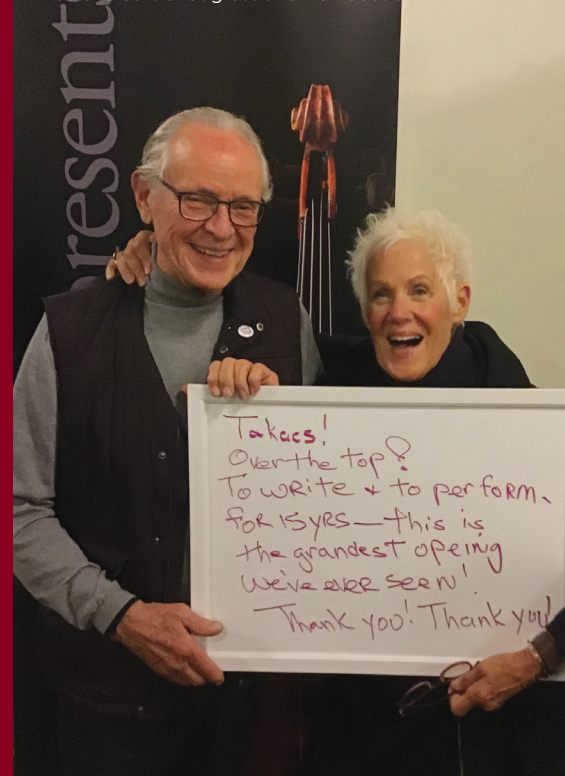 present
Takacs!
Over the top!
To write & to perform.
for 15 yrs — this is
the grandest opeing
we've ever seen!
Thank you! Thank you!